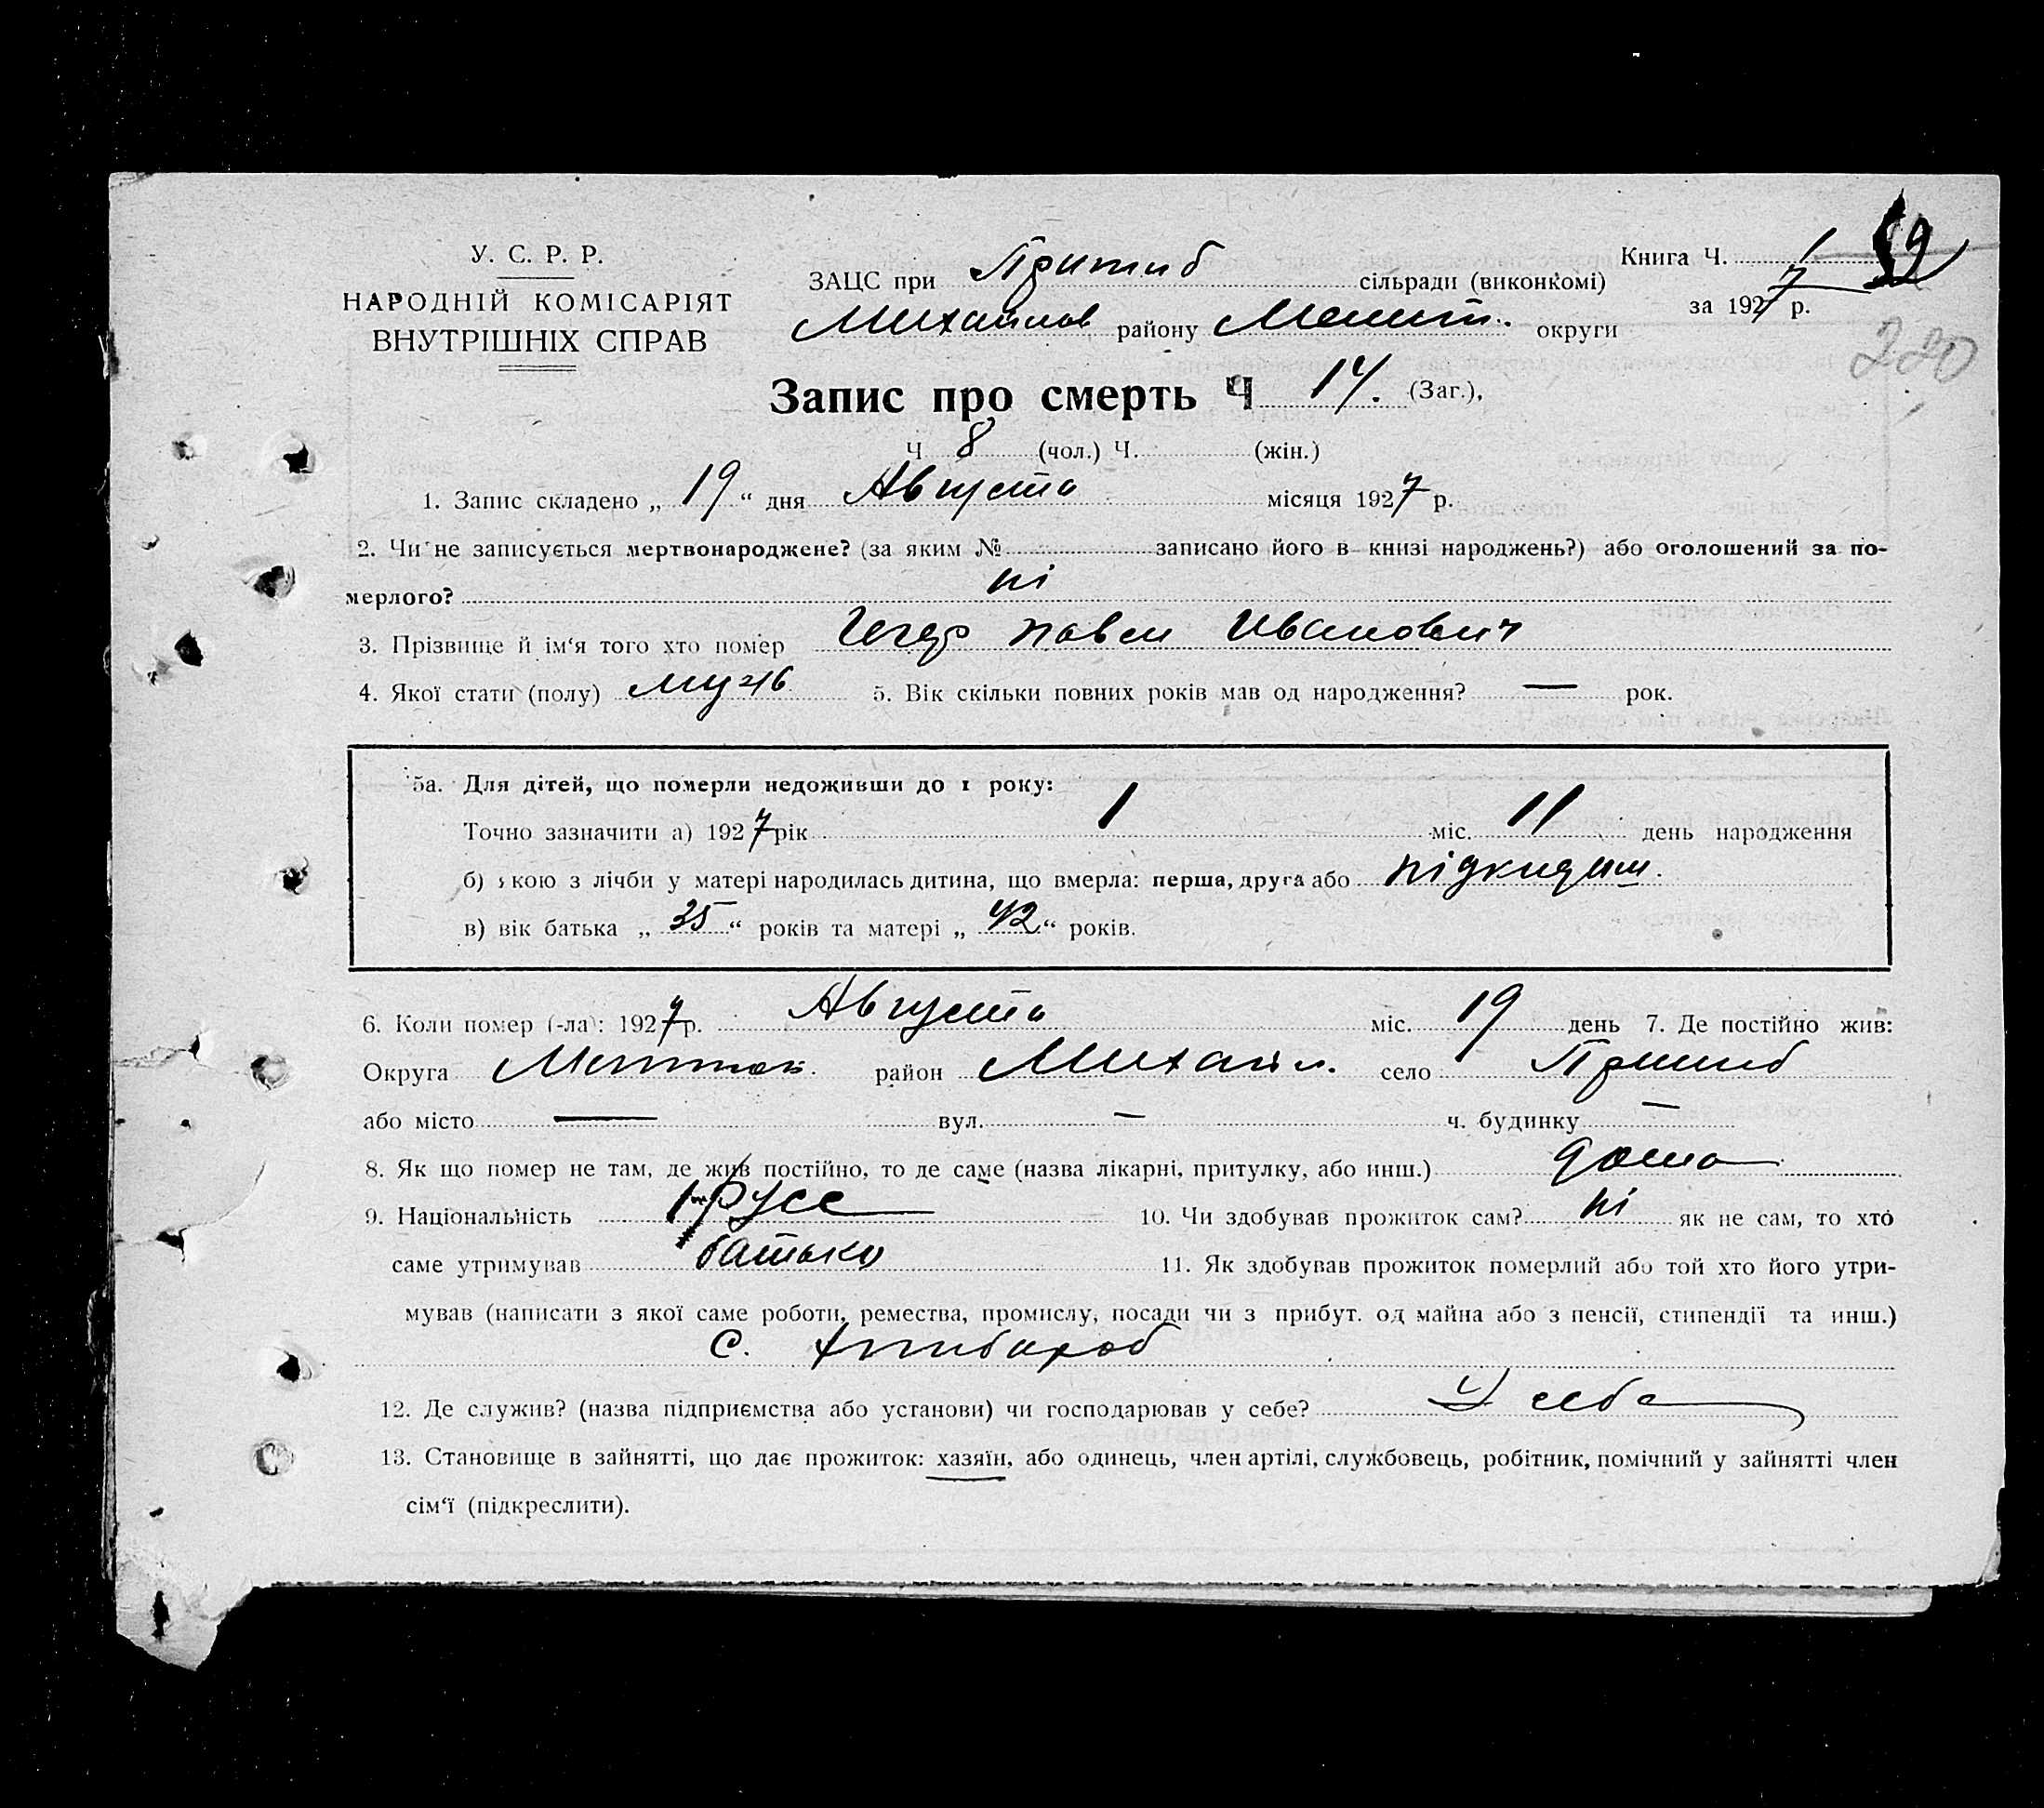 У. С. Р. Р.
НАРОДНІЙ КОМІСАРІЯТ
ВНУТРІШНІХ СПРАВ
ЗАЦС при Пришиб сільради (виконкомі)
Михайлов району Мелит. округи
Книга Ч. 1
за 1927 р.
220
Запис про смерть Ч 14. (Заг.),
Ч 8 (чол.) Ч. (жін.)
1. Запис складено „ 19 “ дня Августа місяця 1927 р.
2. Чи не записується мертвонароджене? (за яким № записано його в книзі народжень?) або оголошений за по-
мерлого? ні
3. Прізвище й ім‘я того хто помер Павел Иванович
4. Якої стати (полу) муж 5. Вік скільки повних років мав од народження? — рок.
5а. Для дітей, що померли недоживши до 1 року:
Точно зазначити а) 1927 рік 1 міс. 11 день народження
б) якою з лічби у матері народилась дитина, що вмерла: перша, друга або підкидиш.
в) вік батька „ 35 “ років та матері „ 42 “ років.
6. Коли помер (-ла): 1927 р. Августа міс. 19 день 7. Де постійно жив:
Округа район Михайл. село Пришиб
або місто — вул. — ч. будинку —
8. Як що помер не там, де жив постійно, то де саме (назва лікарні, притулку, або инш.) дома
9. Національність русс 10. Чи здобував прожиток сам? ні як не сам, то хто
саме утримував батько 11. Як здобував прожиток померлий або той хто його утри-
мував (написати з якої саме роботи, ремества, промислу, посади чи з прибут. од майна або з пенсії, стипендії та инш.)
С. хлибороб
12. Де служив? (назва підприємства або установи) чи господарював у себе? У себе
13. Становище в зайнятті, що дає прожиток: хазяїн, або одинець, член артілі, службовець, робітник, помічний у зайнятті член
сім‘ї (підкреслити).